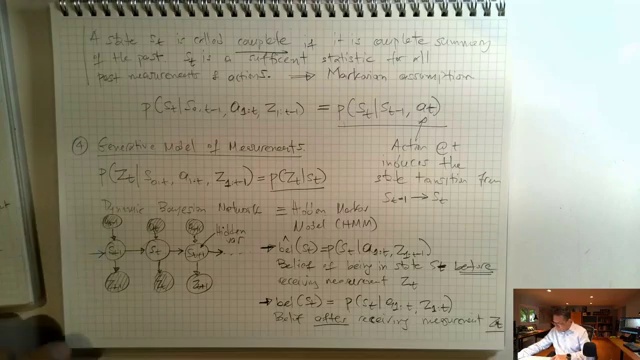 A state St is called complete if it is complete summary
of the past St is a sufficient statistic for all
past measurements & actions. ⟹ Markovian assumption
p(St|S0:t-1, a1:t, Z1:t-1) = p(St|St-1, at)
④ Generative Model of Measurements
p(Zt|S0:t, a1:t, Z1:t-1) = p(Zt|St)
Action @t
induces the
state transition from
St-1 → St
Dynamic Bayesian Network ≡ Hidden Markov
Model (HMM)
at-1 at at+1
Hidden
var
St-1 St St+1 ...
Zt-1 Zt Zt+1
→ b̂el(St) = p(St|a1:t, Z1:t-1)
Belief of being in state St before
receiving measurement Zt
→ bel(St) = p(St|a1:t, Z1:t)
Belief after receiving measurement Zt